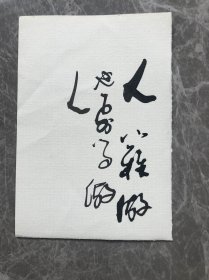 人難做
也要做
人